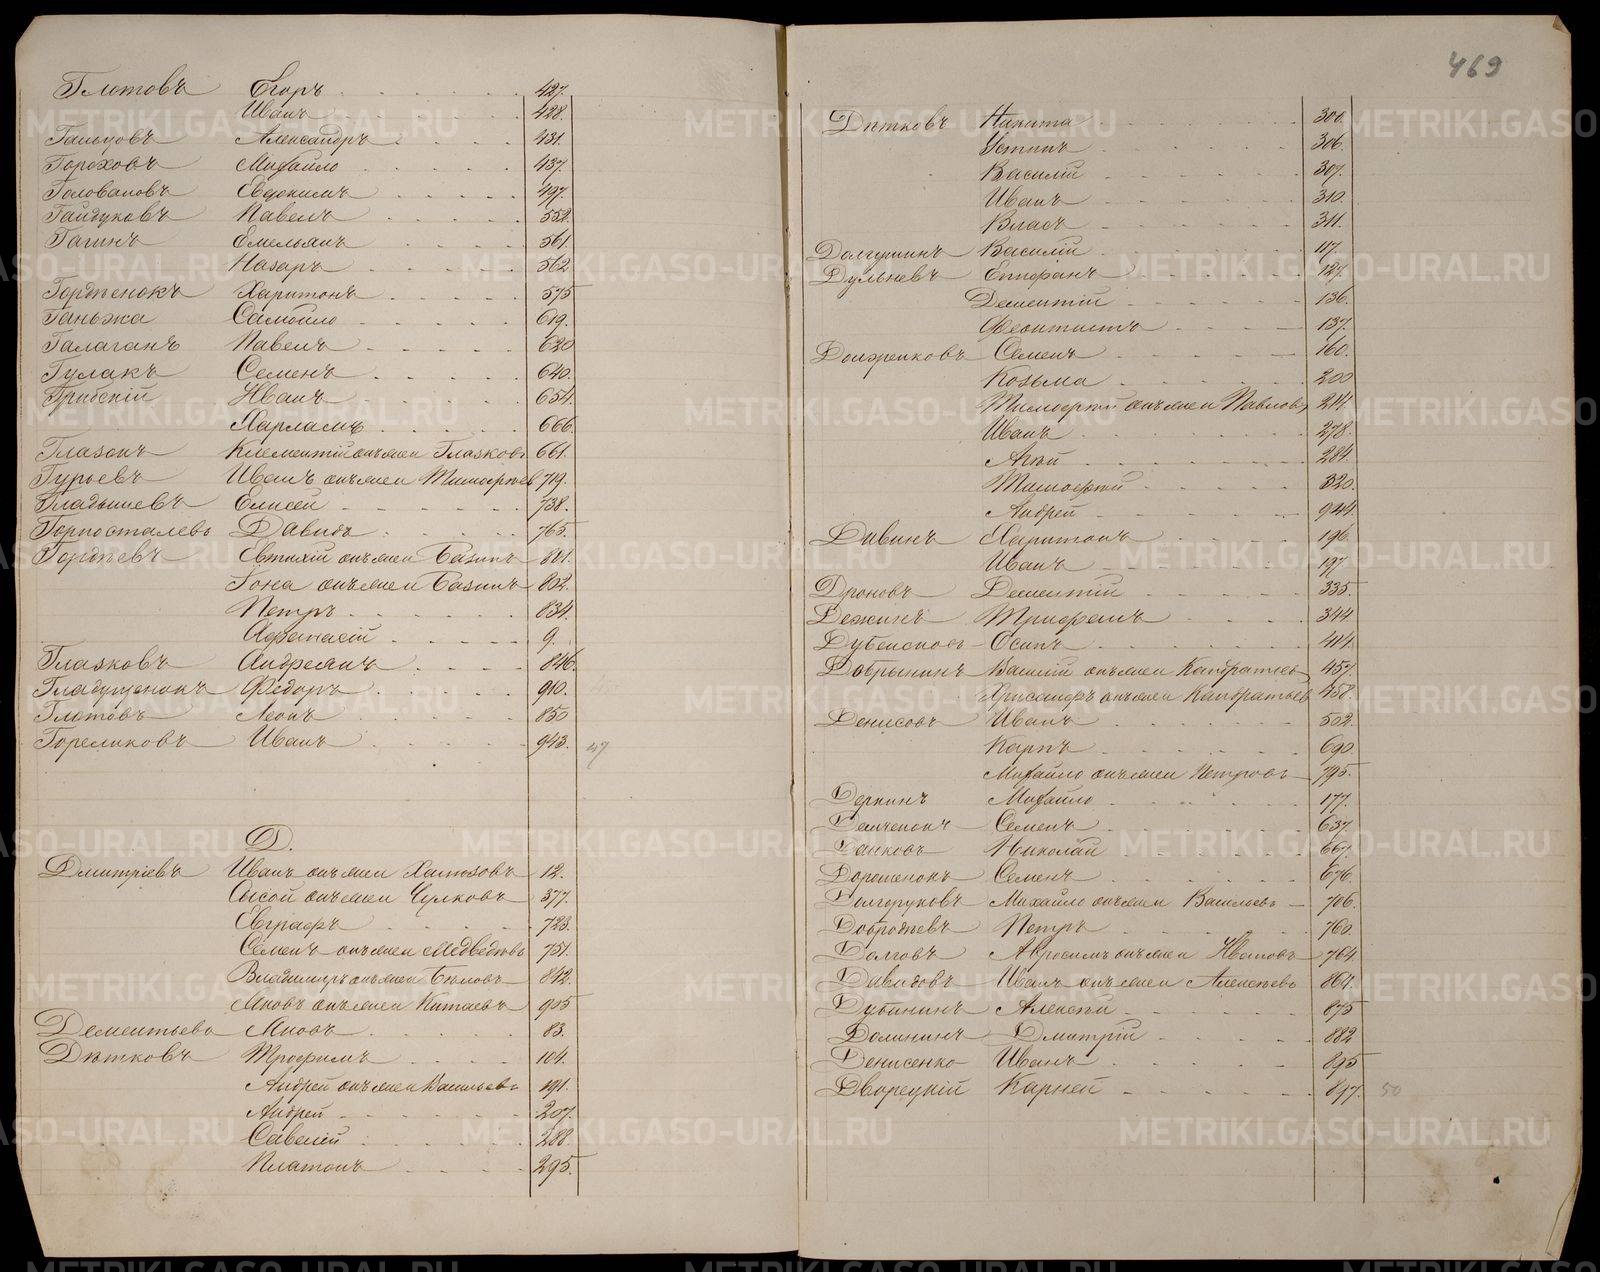 Глотовъ Егоръ 427.
Иванъ 428.
Гальцовъ Александръ 431.
Гороховъ Михайло 437.
Головановъ Евдокимъ 497.
Гайдуковъ Павелъ 552.
Гагинъ Емельянъ 561.
Назаръ 562
Гордѣенокъ Харитонъ 575
Ганьжа Самойло 619.
Галаганъ Павелъ 620
Гулакъ Семенъ 640.
Грибскій Иванъ 654.
Харламъ 666.
Клементій онъ же и Глазковъ 661.
Гурьевъ Иванъ онъ же и Тимофѣевъ 719.
Гладышевъ Елисей 738.
Горносталевъ Давидъ 765.
Гордѣевъ Евтихій онъ же и Базинъ 801.
Іона онъ же и Базинъ 802.
Петръ 834.
Афанасій 9.
Глазковъ Андреянъ 846.
Гладущенокъ Федоръ 910.
Глотовъ Леонъ 850
Гореликовъ Иванъ 943. 47
Д.
Дмитріевъ Иванъ онъ же и Хатозовъ 12.
Сысой онъ же и Чулковъ 377.
Евграфъ 723.
Семенъ онъ же и Медведевъ 751.
Владимиръ онъ же и Бѣловъ 842.
Яковъ онъ же и Китаевъ 905
Дементьевъ Яковъ 83.
Дѣтковъ Трофимъ 104.
Андрей онъ же и Васильевъ 191.
Андрей 207.
Савелій 288.
Платонъ 295.
469
Дѣтковъ Никита 300.
Устинъ 306.
Василій 307.
Иванъ 310.
Власъ 311.
Долгушинъ Василій 117.
Дульневъ Епифанъ 127.
Дементій 136.
Феоктистъ 137.
Должениковъ Семенъ 160.
Козьма 200
Тимофей онъ же и Павловъ 211.
Иванъ 278.
Агѣй 284.
Тимофей 320.
Андрей 944.
Дивинъ Харитонъ 196.
Иванъ 197.
Дроновъ Дементій 335.
Дежинъ Трифонъ 344.
Осипъ 414.
Добрынинъ Василій онъ же и Кондратьевъ 457.
Хрисанфъ онъ же и Кондратьевъ 458.
Денисовъ Иванъ 502.
Карпъ 690.
Михайло онъ же и Петровъ 795.
Деркинъ Михайло 177.
Демченокъ Семенъ 637.
Данковъ Николай 667.
Дорошенокъ Семенъ 676.
Долгоруковъ Михайло онъ же и Васильевъ 706.
Добродѣевъ Петръ 760.
Долговъ Абросимъ онъ же и Ивановъ 764
Давидовъ Иванъ онъ же и Алексѣевъ 864.
Дубининъ Алексѣй 875
Долининъ Дмитрій 882
Денисенко Иванъ 895
Дворецкій Карней 897. 50